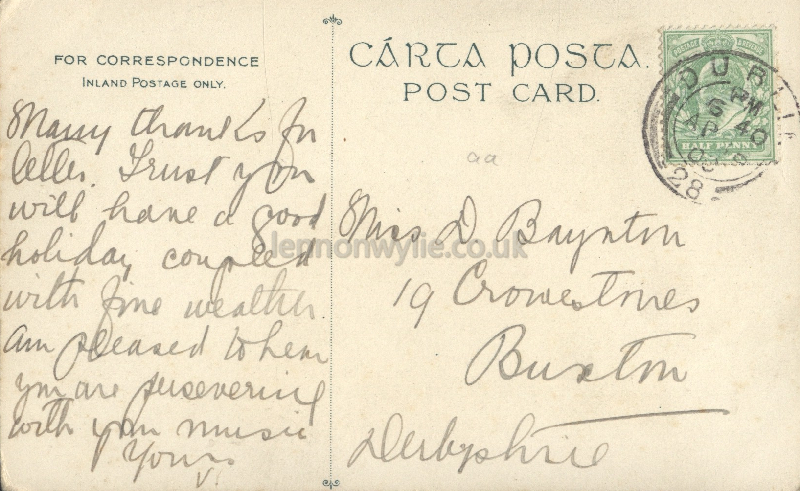 FOR CORRESPONDENCE
INLAND POSTAGE ONLY.
Many thanks for
letter. Trust you
will have a good
holiday coupled
with fine weather.
Am pleased to hear
you are persevering
with your music
Yours
V.
CÁRTA POSTA.
POST CARD.
aa
Miss D Baynton
19 Crowestones
Buxton
Derbyshire
POSTAGE
HALF PENNY
DUBLIN
6 40 PM
AP
28
lennonwylie.co.uk